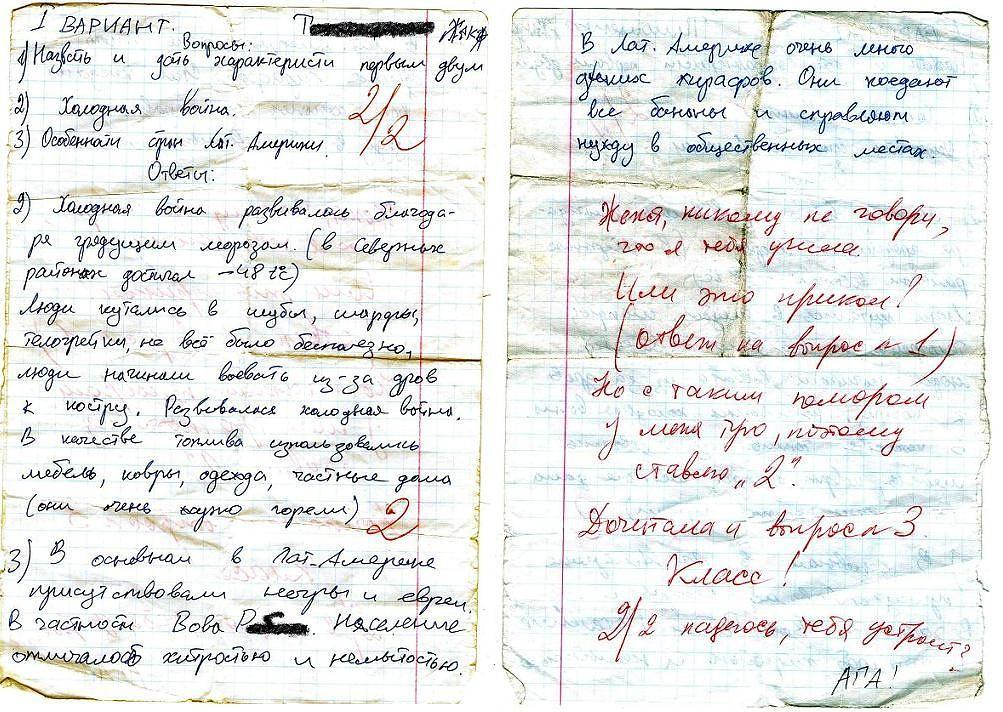 I ВАРИАНТ. Т Женя
Вопросы:
1) Назвать и дать характеристи первым двум
2) Холодная война.
2/2
3) Особеннати стран Лат. Америки.
Ответы:
2) Холодная война развивалось благода-
ря грядущем морозом. (в Северных
районах достигал -48 1°С)
Люди кутались в шубы, шарфы,
телогрейки, но всё было бесполезно,
люди начинали воевать из-за дров
к костру. Развивалася холодная война.
В качестве топлива использовались
мебель, ковры, одежда, частные дома
(они очень хужо горели)
2
3) В основном в Лат. Америке
присутствовали негры и евреи.
В частности Вова Р. Население
отличалось хитростью и немытостью.
В Лат. Америке очень много
диких жирафов. Они поедают
все бананы и справляют
нужду в общественных местах.
Женя, никому не говори,
что я тебя учила.
Или это прикол?
(ответ на вопрос n 1)
Но с таким юмором
у меня туго, потому
ставлю „2".
Дочитала и вопрос n 3.
Класс!
2/2 надеюсь, тебя устроит?
АГА!